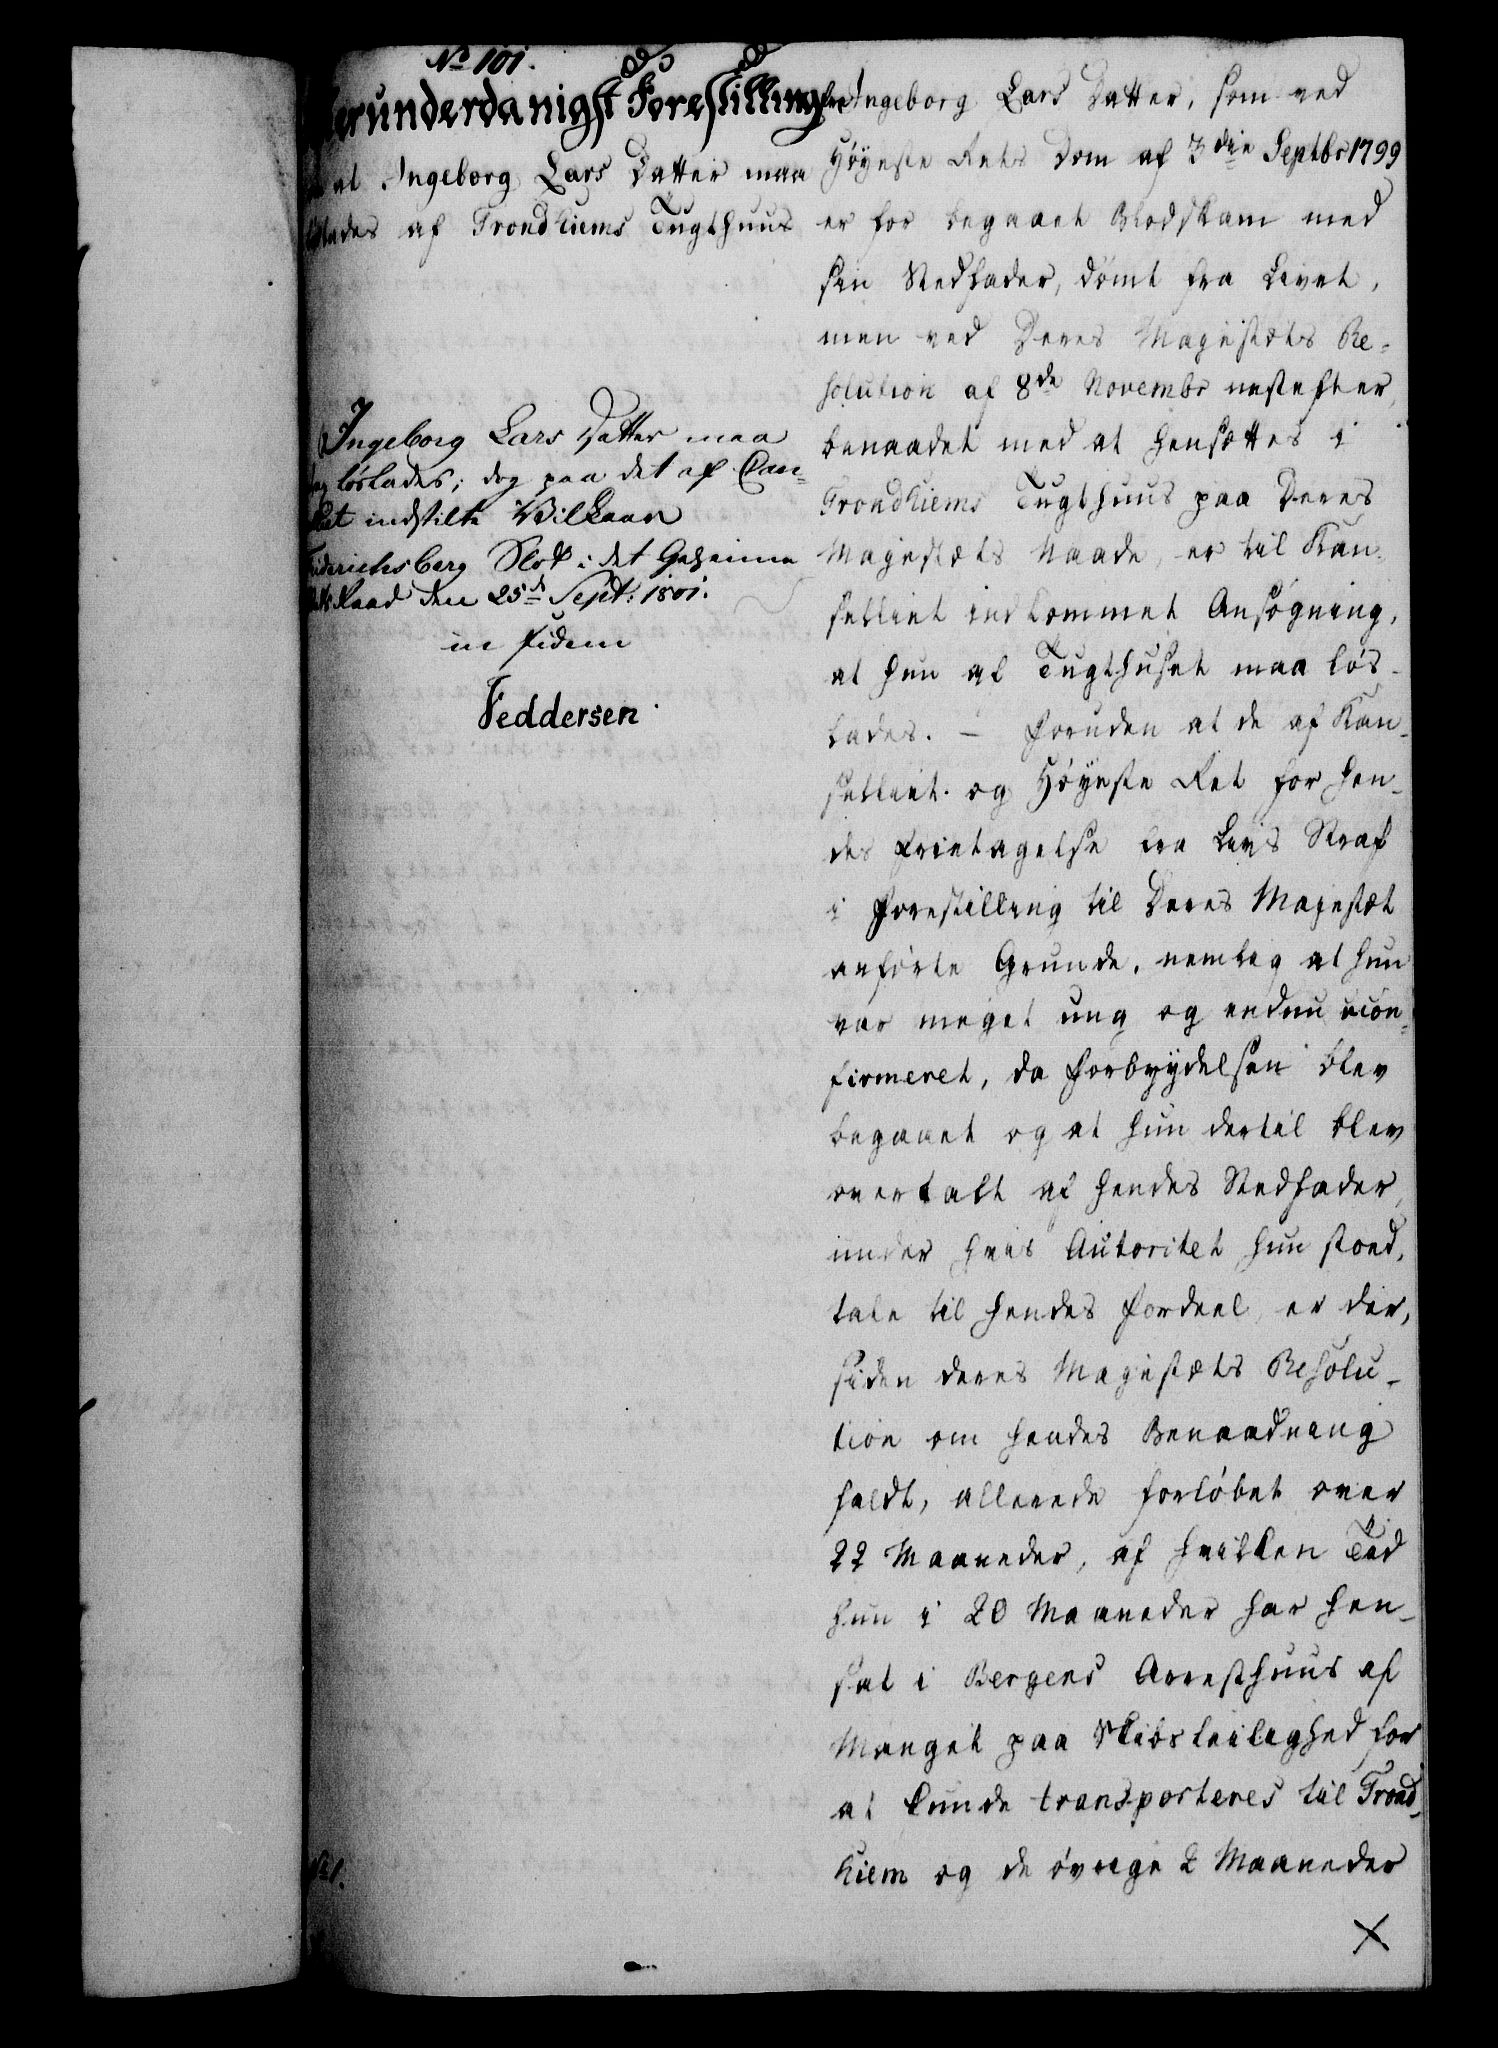 No 101.
erunderdanigst Forestilling
at Ingeborg Lars Datter maa
löslades af Trondhiems Tugthuus
Ingeborg Lars Datter maa
löslades; dog paa det af Can-
indstilte Vilkaar
Friderichsberg Slot i det Geheime
Raad den 25d Sept: 1801.
in fidem
Feddersen.
For Ingeborg Lars Datter, som ved
Höyeste Rets Dom af 3die Septbr 1799
er for begaaet Blodskam med
sin Stedfader, dömt fra Livet,
men ved Deres Majestæts Re-
solution af 8de Novembr nestefter,
benaadet med at hensættes i
Trondhiems Tugthuus paa Deres
Majestæts Naade, er til Kan-
celliet indkommet Ansögning,
at hun af Tugthuset maa lös-
lades. — Foruden at de af Kan-
celliet og Höyeste Ret for hen-
des Fritagelse fra Livs Straf
i Forestilling til Deres Majestæt
anförte Grunde, nemlig at hun
var meget ung og endnu ucon-
firmeret, da Forbrydelsen blev
begaaet og at hun dertil blev
overtalt af hendes Stedfader,
under hvis Autoritet hun stoed,
tale til hendes Fordeel, er der,
siden deres Majestæts Resolu-
tion om hendes Benaadning
faldt, allerede forlöbet over
22 Maaneder, af hvilken Tid
hun i 20 Maaneder har hen-
sat i Bergens Arresthuus af
Mangel paa Skibsleilighed for
at kunde transporteres til Trond-
hiem og de övrige 2 Maaneder
No 1.